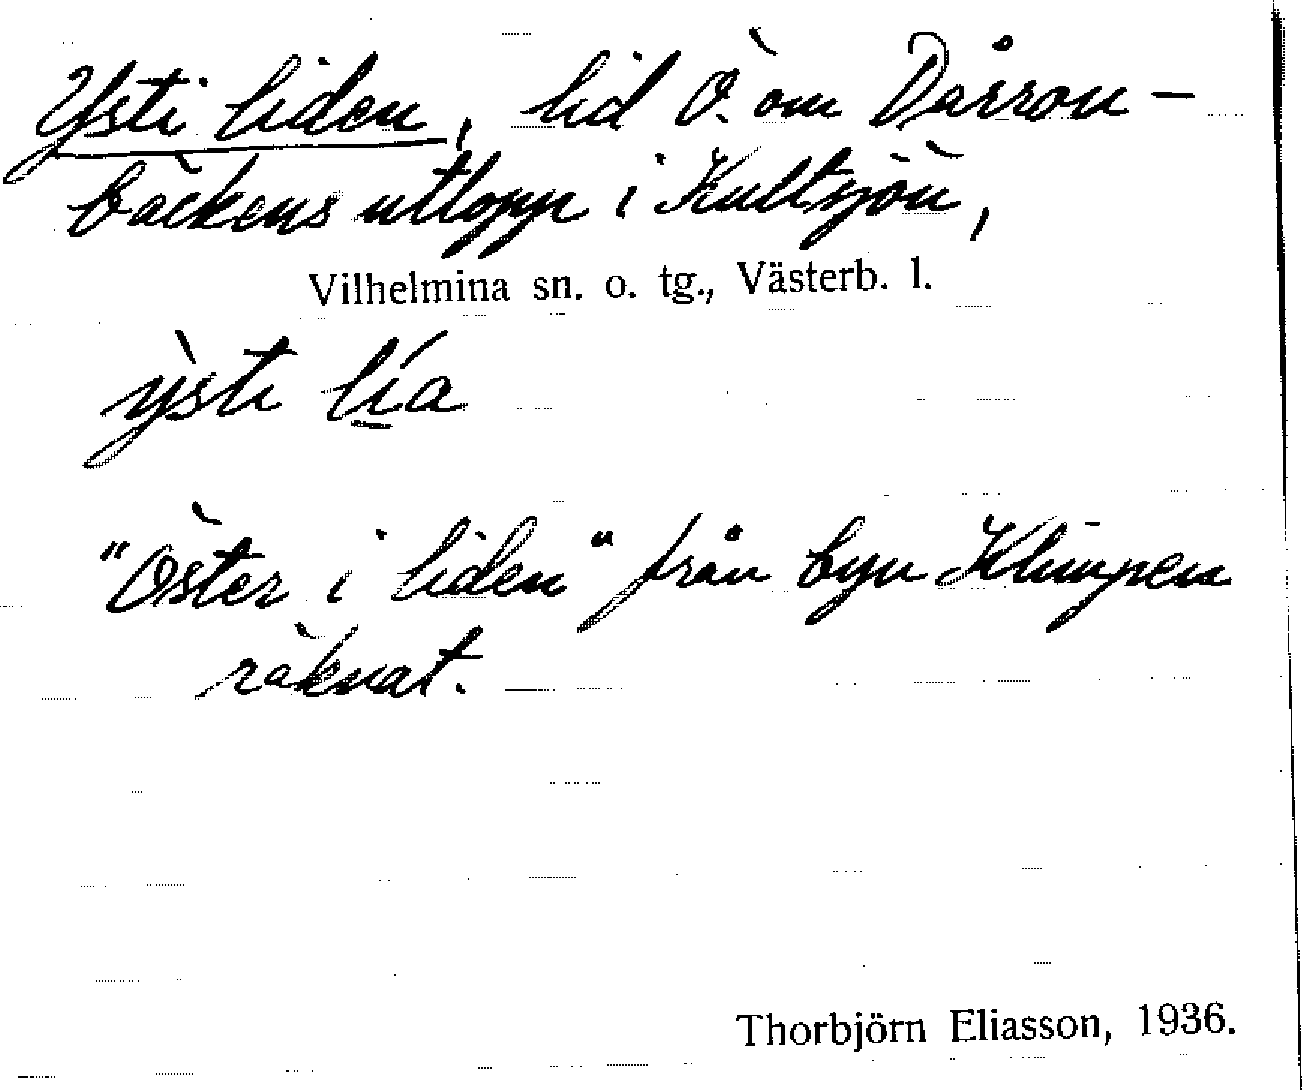 Ysti liden, lid Ö. om Dårron-
bäckens utlopp i Kultsjön,
Vilhelmina sn. o. tg., Västerb. l.
ỳsti lía
"Öster i liden" från byn Klimpen
räknat.
Thorbjörn Eliasson, 1936.